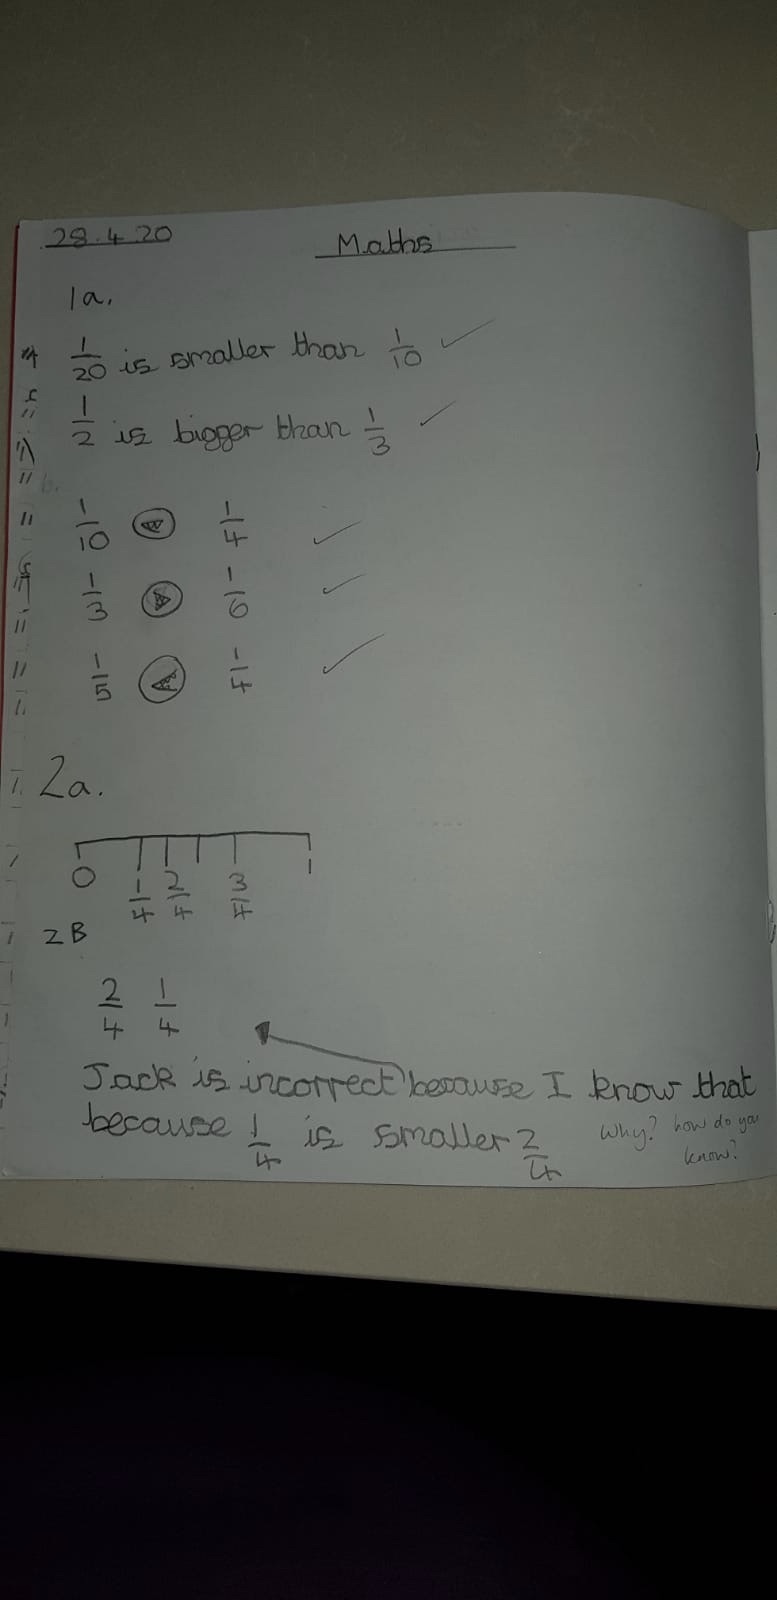 28.4.20
Maths
1a.
1/20 is smaller than 1/10 ✓
1/2 is bigger than 1/3 ✓
b.
1/10 < 1/4 ✓
1/3 > 1/6 ✓
1/5 < 1/4 ✓
2a.
0 1/4 2/4 3/4 1
2B
2/4 1/4
Jack is incorrect because I know that
because 1/4 is smaller 2/4 Why? how do you
know?